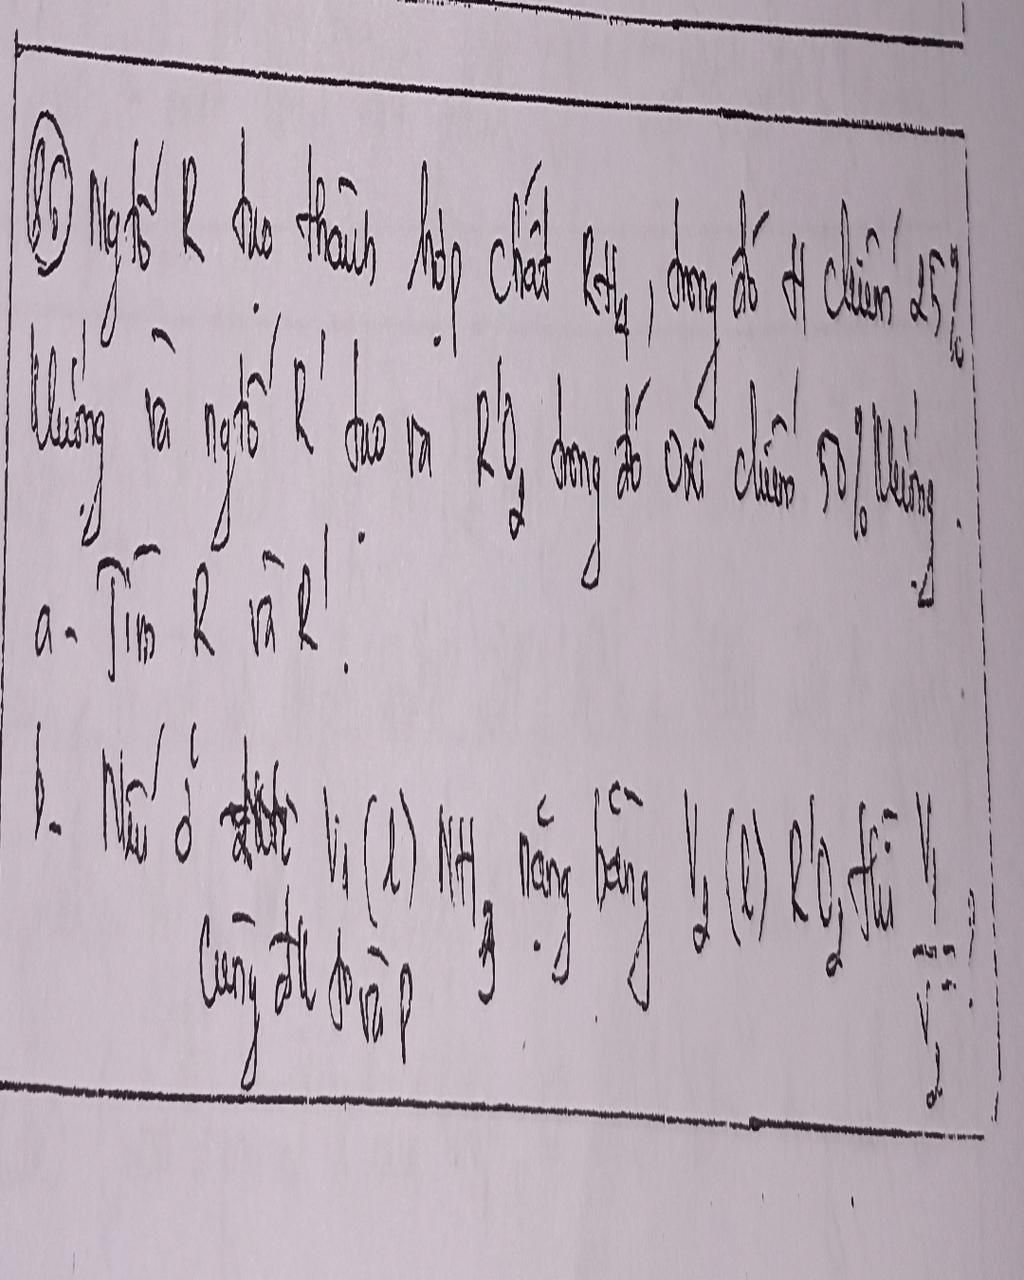 Ngtố R tạo thành hợp chất RH4, trong đó H chiếm 25%
klượng và ngtố R' tạo ra R'O2 trong đó oxi chiếm 50% klượng.
a- Tìm R và R'.
b- Nếu ở V1 (l) NH3 nặng bằng V2 (l) R'O2 thì V1/V2 = ?
cùng đk to và p